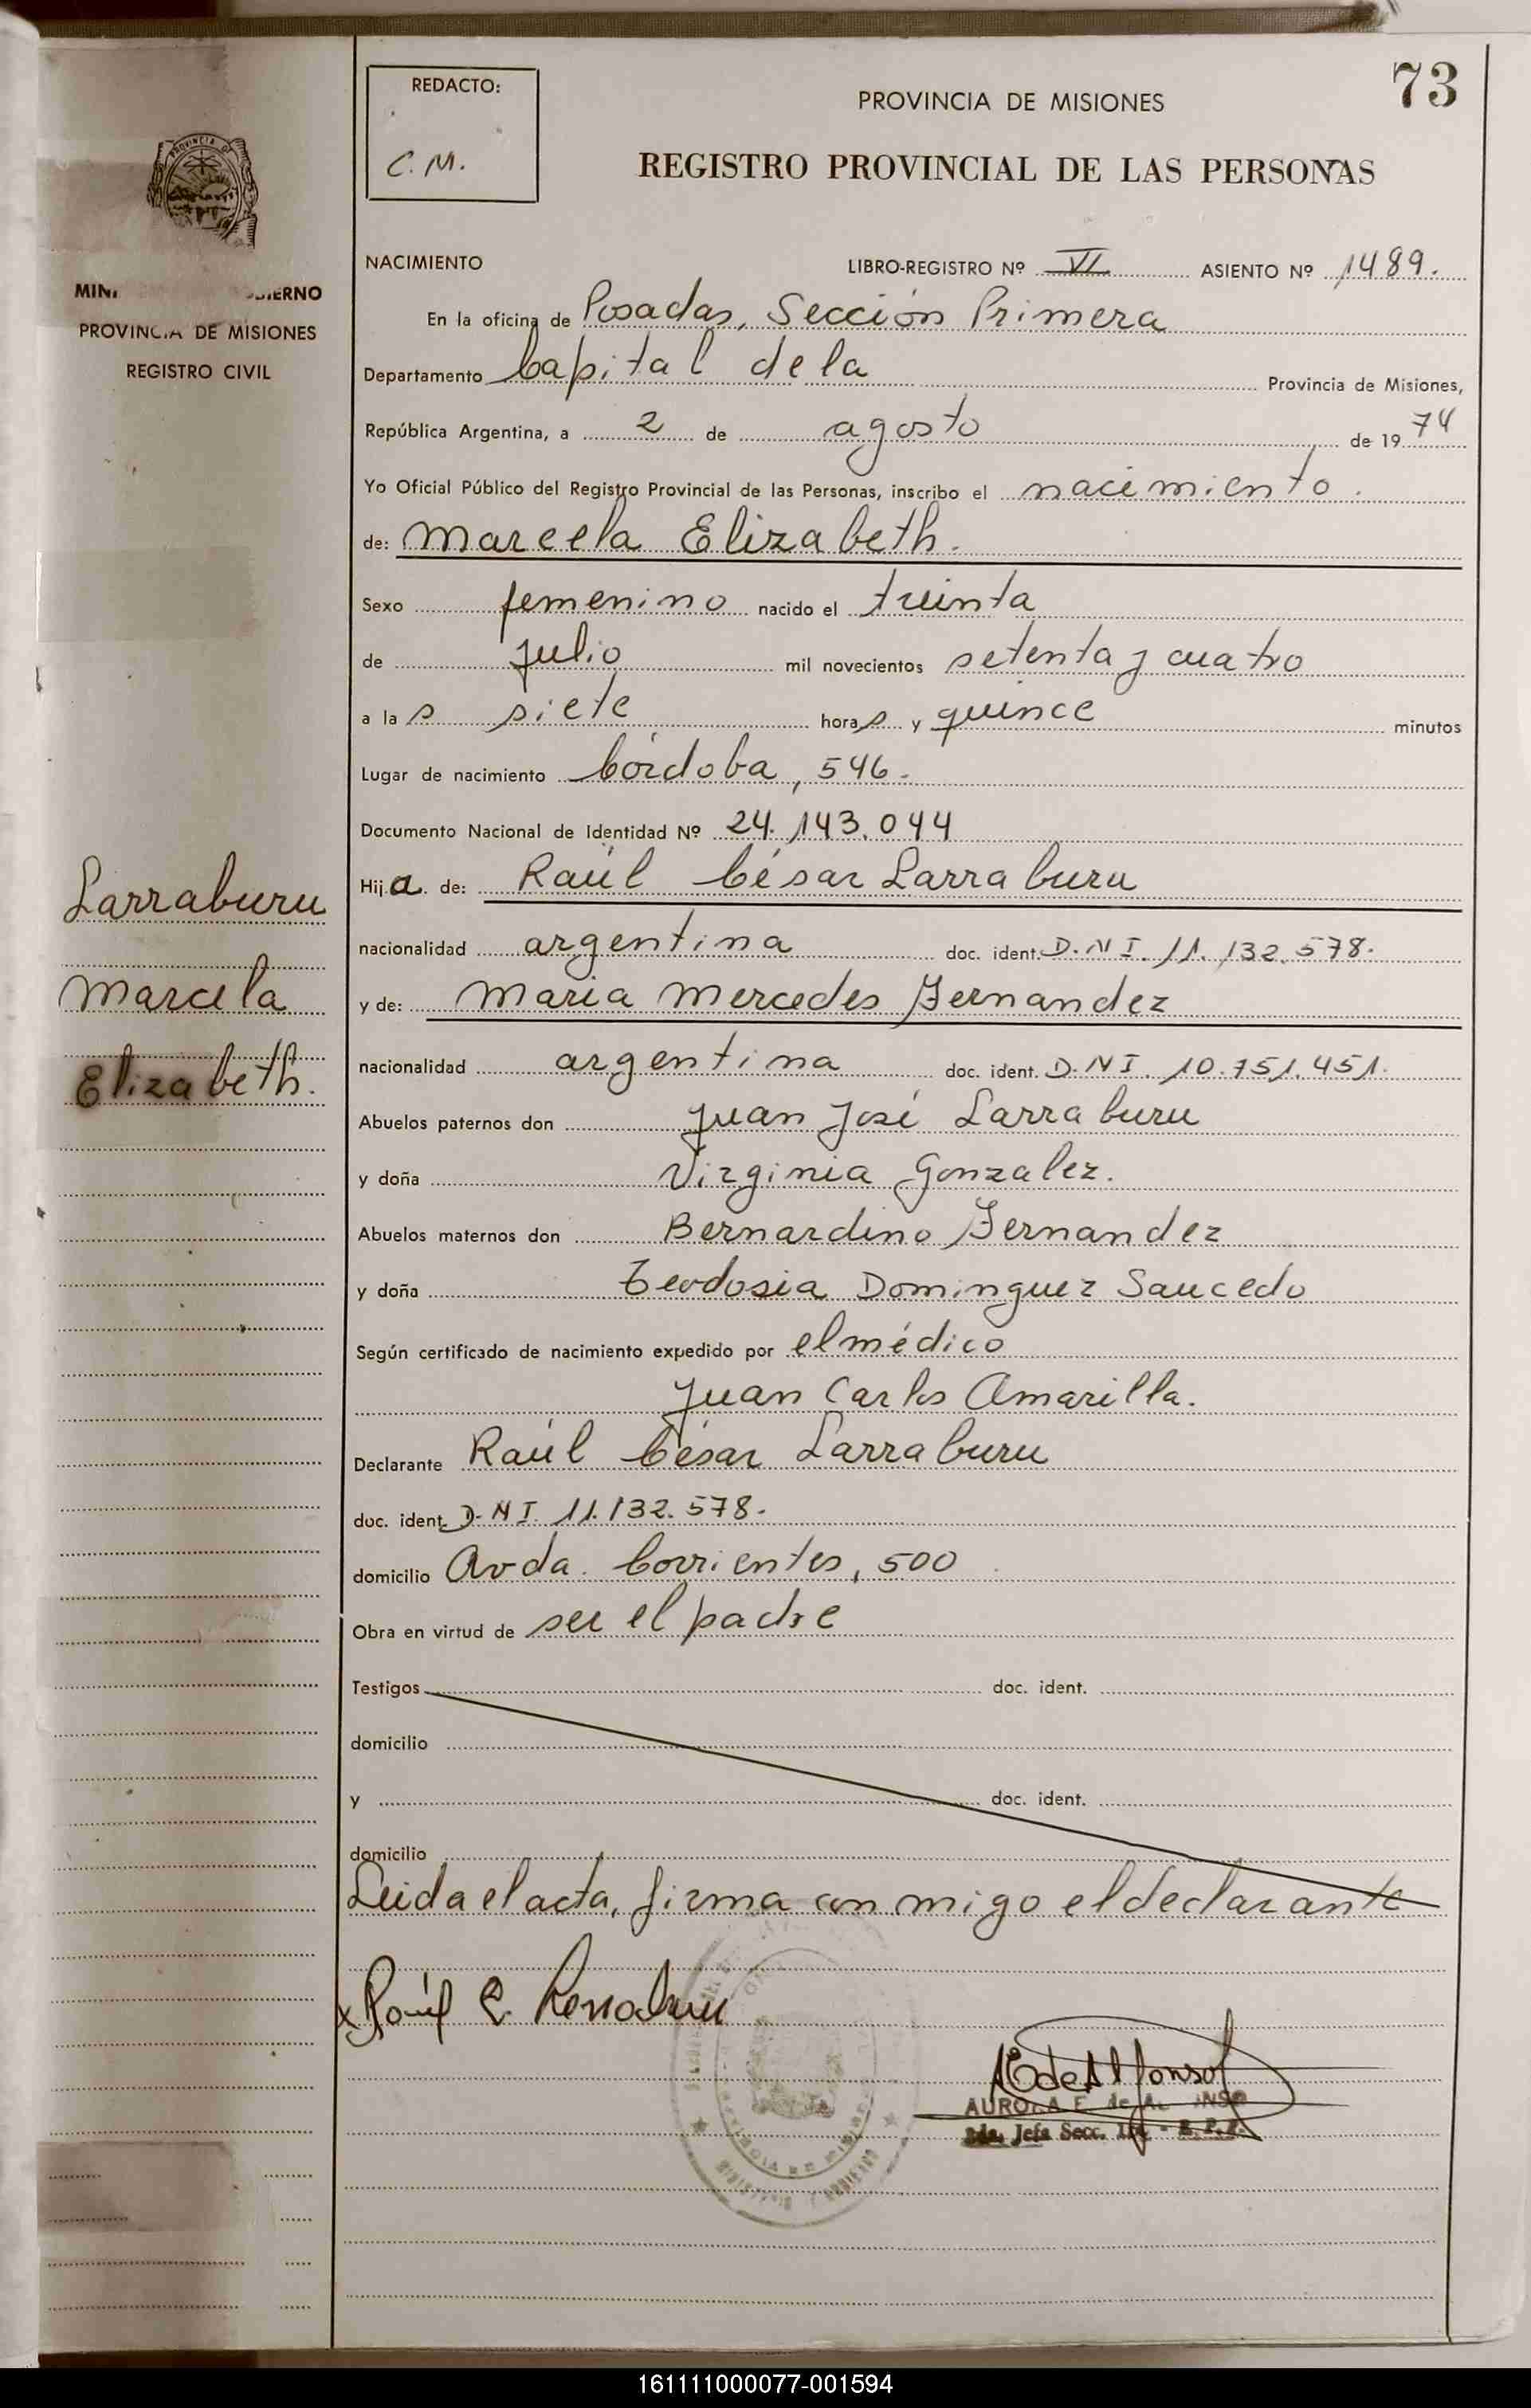 73
REDACTO:
C. M.
PROVINCIA DE MISIONES
REGISTRO PROVINCIAL DE LAS PERSONAS
PROVINCIA DE MISIONES
REGISTRO CIVIL
NACIMIENTO LIBRO-REGISTRO Nº VI ASIENTO Nº 1489.
En la oficina de Posadas, Sección Primera
Departamento Capital de la Provincia de Misiones,
República Argentina, a 2 de agosto de 1974
Yo Oficial Público del Registro Provincial de las Personas, inscribo el nacimiento.
de: Marcela Elizabeth.
Sexo femenino nacido el treinta
de Julio mil novecientos setenta y cuatro
a las siete horas y quince minutos
Lugar de nacimiento Córdoba, 546.
Documento Nacional de Identidad Nº 24.143.044
Hija de: Raúl César Larraburu
nacionalidad argentina doc. ident. D.N I. 11.132.578.
y de: Maria Mercedes Fernandez
nacionalidad argentina doc. ident. D.N I. 10.751.451.
Abuelos paternos don Juan José Larraburu
y doña Virginia Gonzalez.
Abuelos maternos don Bernardino Fernandez
y doña Teodosia Dominguez Saucedo
Según certificado de nacimiento expedido por el médico
Juan Carlos Amarilla.
Declarante Raúl César Larraburu
doc. ident. D-N I. 11.132.578.
domicilio Avda. Corrientes, 500
Obra en virtud de ser el padre
Testigos doc. ident.
domicilio
y doc. ident.
domicilio
Leida el acta, firma con migo el declarante
Larraburu
Marcela
Elizabeth.
x Raúl C. Larraburu
AEdeAlfonso
AURORA E. de
Jefa Secc.
161111000077-001594